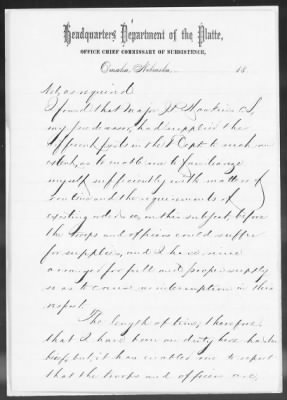 Headquarters Department of the Platte,
OFFICE CHIEF COMMISSARY OF SUBSISTENCE,
Omaha, Nebraska, 18
as required.
I found that Major J. P. Hawkins C.S.,
my predecessor, had supplied the
different posts in the Dept to such an
extent, as to enable me to familiarize
myself sufficiently with matters of
routine and the requirements of
existing orders, on this subject, before
the troops and officers could suffer
for supplies, and I have since
arranged for full and proper supply
so as to cause no interruption in this
respect.
The length of time, therefore,
that I have been on duty here has been
brief, but it has enabled me to report
that the troops and officers are,